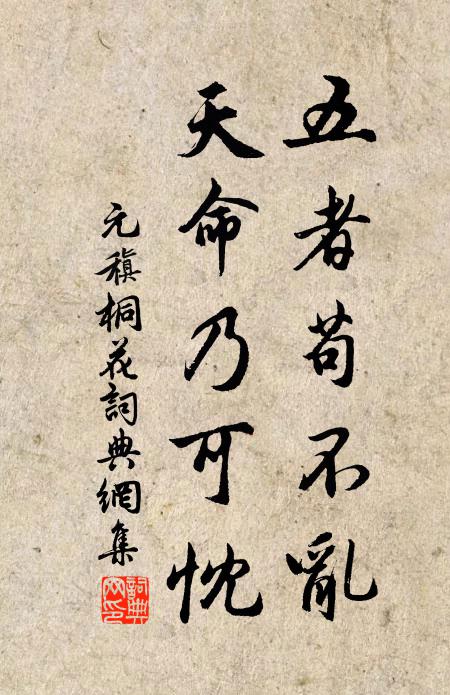 五者苟不亂
天命乃可忱
元稹桐花詞典網集
詞典网印